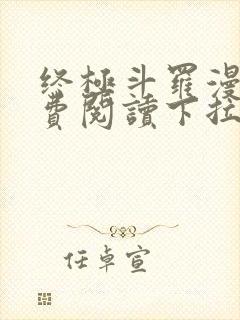 终極斗羅漫
費閱讀下拉
任卓宣